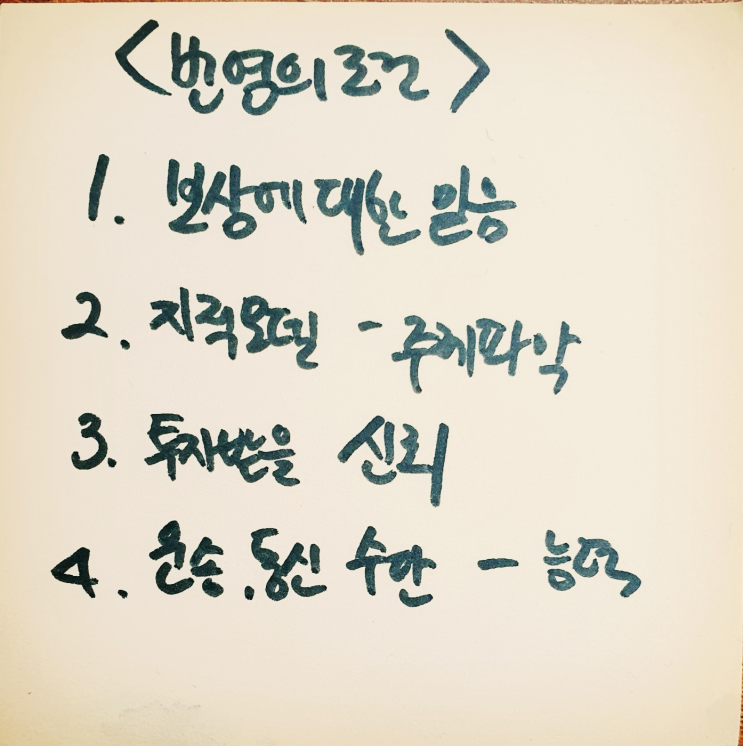 <번영의 조건>
1. 보상에 대한 믿음
2. 지적 - 주제파악
3. 투자받을 신뢰
4. 운송.통신 수단 - 능력